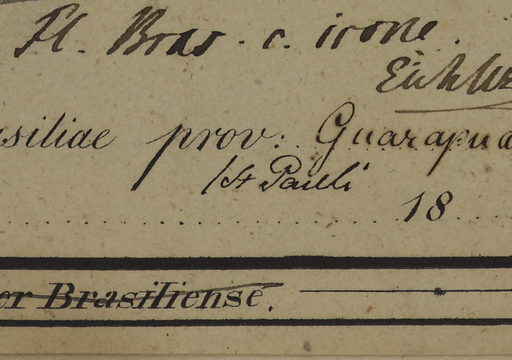 Fl. Bras. c. icone.
Eichler
asiliae prov: Guarapua
St Pauli
18
er Brasiliense.